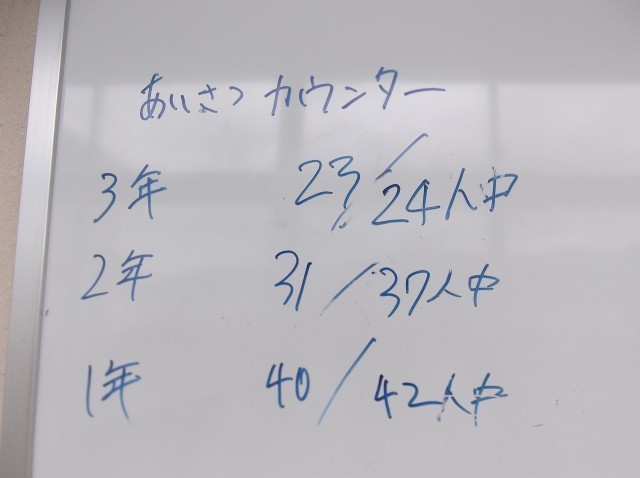 あいさつ カウンター
3年 23/24人中
2年 31/37人中
1年 40/42人中